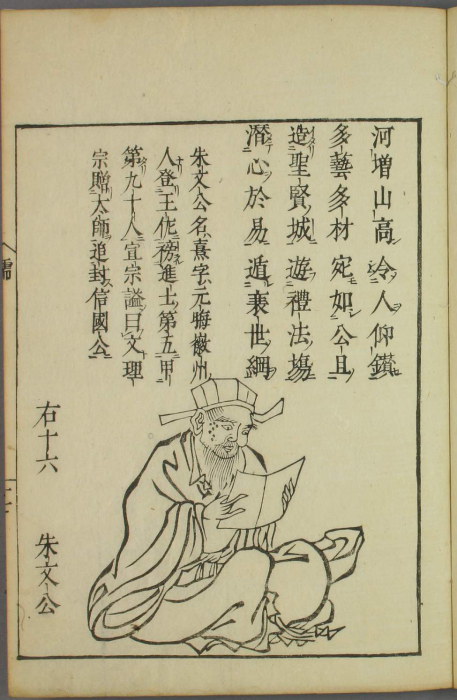 河増山高令人仰鑚
多藝多材宛如公旦
造聖賢城遊禮法塲
潛心於易遁衰世綱
朱文公名熹字元晦徽州
人登王佐榜進士第五甲
第九十人宜宗謚曰文理
宗贈太師追封信國公
右十六 朱文公
儒